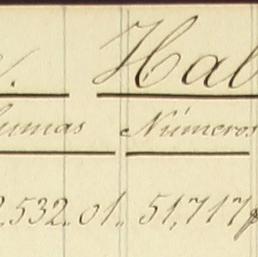 Hab
Sumas Números
2,532.01. 51,717